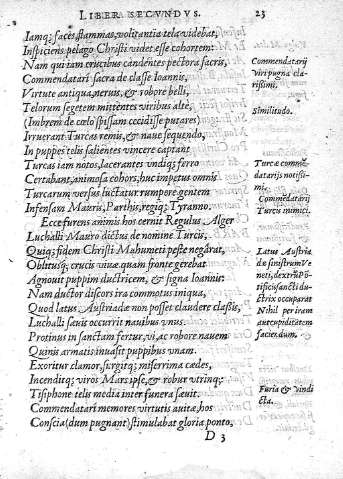 LIBER SECVNDVS. 23
Iamq; faces, flammas, volitantia tela videbat,
Inspiciens pelago Christi videt esse cohortem:
Nam qui iam crucibus candentes pectora sacris,
Commendatari sacra de classe Ioannis,
Virtute antiqua, neruis, & robore belli,
Telorum segetem mittentes viribus alte,
(Imbrem de cœlo spissam cecidisse putares)
Irruerant Turcas remis, & naue sequendo,
In puppes telis salientes vincere captant
Turcas iam notos, lacerantes vndiq; ferro
Certabant, animosa cohors, huc impetus omnis
Turcarum versus luctatur rumpere gentem
Infensam Mauris, Parthis, regiq; Tyranno.
Ecce furens animis hos cernit Regulus Alger
Luchalli Mauro dictus de nomine Turcis,
Quiq; fidem Christi Mahumeti peste negârat,
Oblitusq; crucis viuæ quam fronte gerebat
Agnouit puppim ductricem, & signa Ioannis:
Nam ductor discors ira commotus iniqua,
Quod latus Austriadæ non posset claudere classis,
Luchalli sæuis occurrit nauibus vnus.
Protinus in sanctam fertur, vi, ac robore nauem
Quinis armatis inuasit puppibus vnam.
Exoritur clamor, surgitq; miserrima cædes,
Incenditq; viros Mars ipse, & robur vtrinq;
Tisiphone telis media inter funera sæuit.
Commendatari memores virtutis auitæ, hos
Conscia (dum pugnant) stimulabat gloria ponto,
D 3
Commendatarij
viri pugna clarissimi.
Similitudo.
Turcæ commendatarijs notissimi.
Commēdatarij
Turcis inimici.
Latus Austriadæ
de sinistrum Veneti,
dextrū Pōtificiusancti
ductrix occuparat
Nihil per iram
aut cupiditatem
faciendum.
Furia & vindicta.